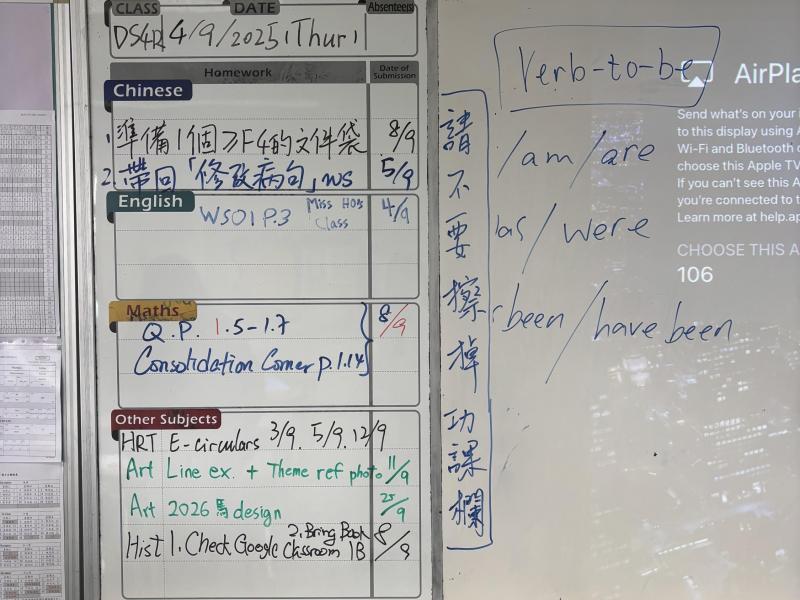 CLASS DATE Absentee(s)
4/9/2025 (Thur)
Homework Date of Submission
Chinese
1. 準備1個≥F4的文件袋 8/9
2. 帶回「修改病句」ws 5/9
English
WS01 P.3 Miss Ho's Class 4/9
Maths
Q.P. 1.5-1.7 8/9
Consolidation Corner p.1.14
Other Subjects
HRT E-circulars 3/9. 5/9. 12/9
Art Line ex. + Theme ref photo 11/9
Art 2026 馬 design 25/9
Hist 1. Check Google Classroom 2. Bring Book 1B 8/9
請不要擦掉功課欄
Verb-to-be
/am/are
/were
been/have been
AirPla
Send what's on your
to this display using A
Wi-Fi and Bluetooth
choose this Apple TV
If you can't see this A
you're connected to t
Learn more at help.ap
CHOOSE THIS A
106